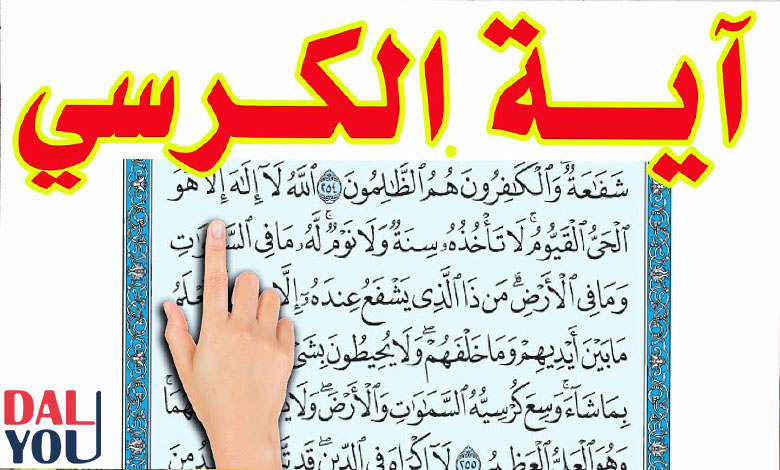 آية الكرسي
شَفَـٰعَةٌ ۗ وَٱلْكَـٰفِرُونَ هُمُ ٱلظَّـٰلِمُونَ ٢٥٤ ٱللَّهُ لَآ إِلَـٰهَ إِلَّا هُوَ
ٱلْحَىُّ ٱلْقَيُّومُ ۚ لَا تَأْخُذُهُۥ سِنَةٌ وَلَا نَوْمٌ ۚ لَّهُۥ مَا فِى ٱلسَّمَـٰوَٰتِ
وَمَا فِى ٱلْأَرْضِ ۗ مَن ذَا ٱلَّذِى يَشْفَعُ عِندَهُۥٓ إِلَّا
مَا بَيْنَ أَيْدِيهِمْ وَمَا خَلْفَهُمْ ۖ وَلَا يُحِيطُونَ
بِمَا شَآءَ ۚ وَسِعَ كُرْسِيُّهُ ٱلسَّمَـٰوَٰتِ وَٱلْأَرْضَ ۖ
وَهُوَ ٱلْعَلِىُّ ٱلْعَظِيمُ ٢٥٥ لَآ إِكْرَاهَ فِى ٱلدِّينِ ۖ قَد
DAL
YOU